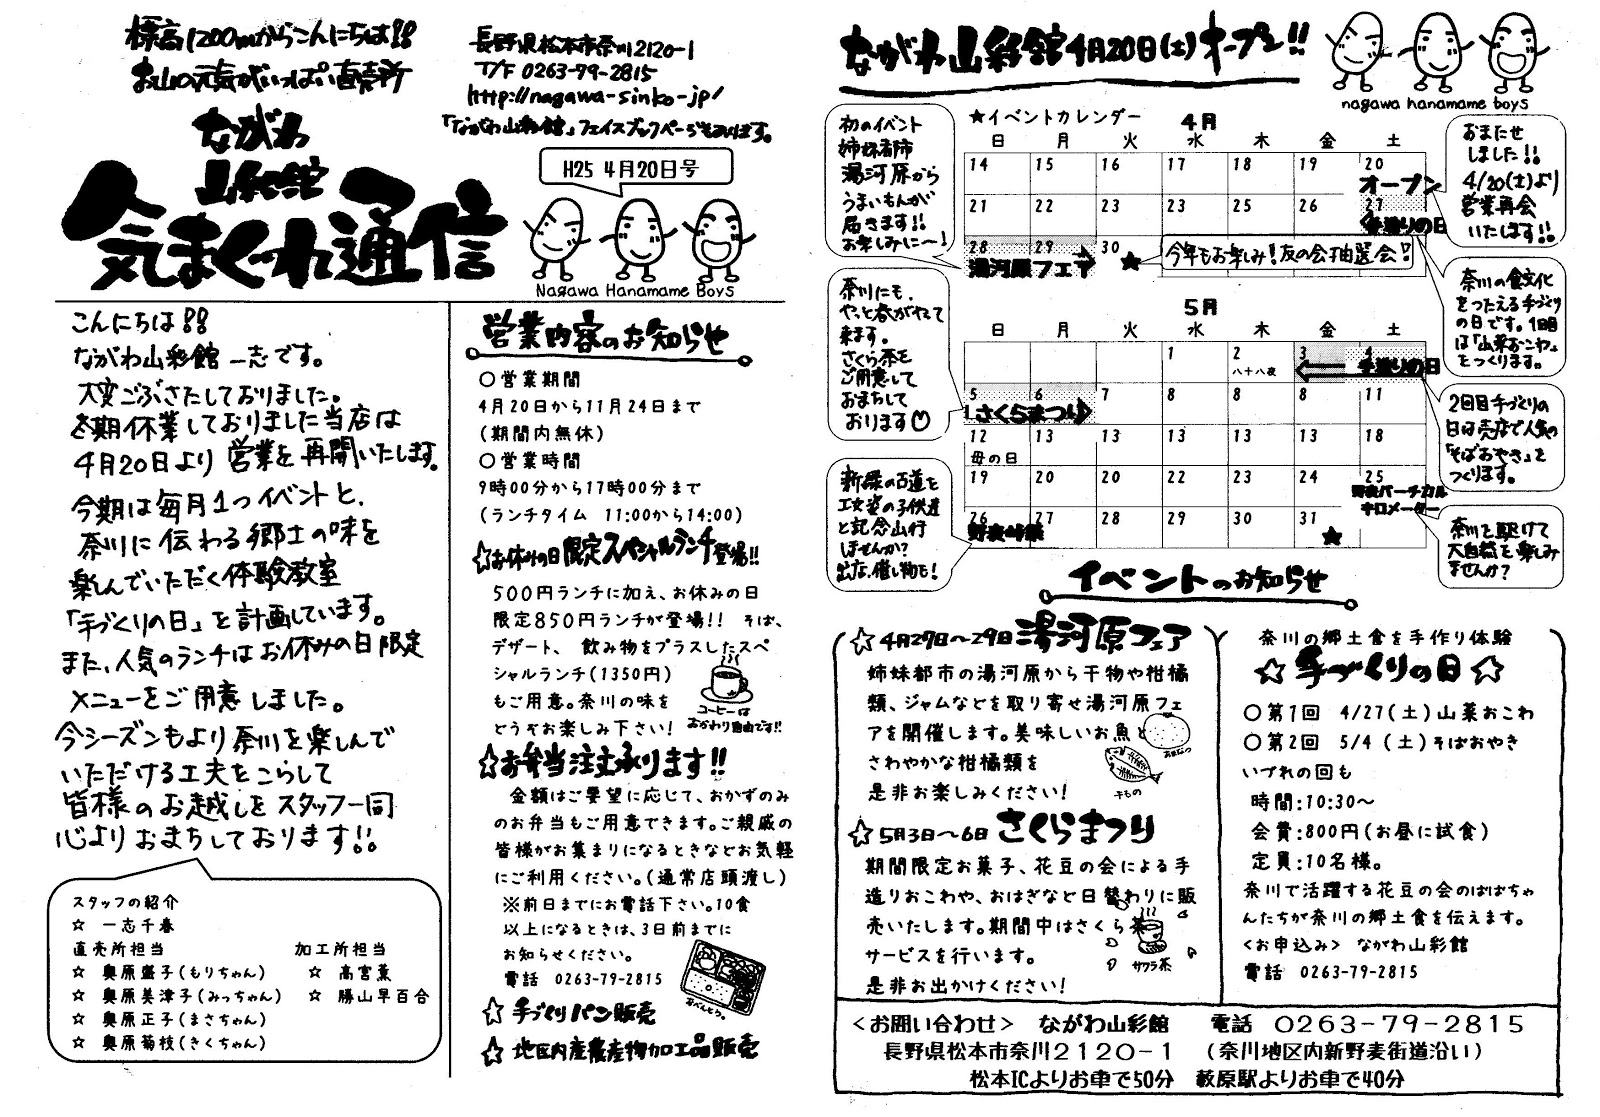 標高1200mからこんにちは!!
お山の元気がいっぱい直売所
ながわ
山彩館
気まぐれ通信
長野県松本市奈川2120-1
T/F 0263-79-2815
http://nagawa-sinko-jp/
「ながわ山彩館」フェイスブックページもあります。
H25 4月20日号
Nagawa Hanamame Boys
こんにちは!!
ながわ山彩館 一志です。
大変ごぶさたしておりました。
冬期休業しておりました当店は
4月20日より営業を再開いたします。
今期は毎月1つイベントと、
奈川に伝わる郷土の味を
楽しんでいただく体験教室
「手づくりの日」を計画しています。
また、人気のランチはお休みの日限定
メニューをご用意しました。
今シーズンもより奈川を楽しんで
いただける工夫をこらして
皆様のお越しをスタッフ一同
心よりおまちしております!!
スタッフの紹介
☆ 一志千春
直売所担当
☆ 奥原盛子(もりちゃん)
☆ 奥原美津子(みっちゃん)
☆ 奥原正子(まさちゃん)
☆ 奥原菊枝(きくちゃん)
加工所担当
☆ 高宮薫
☆ 勝山早百合
営業内容のお知らせ
○営業期間
4月20日から11月24日まで
(期間内無休)
○営業時間
9時00分から17時00分まで
(ランチタイム 11:00から14:00)
☆お休みの日限定スペシャルランチ登場!!
500円ランチに加え、お休みの日
限定850円ランチが登場!! そば、
デザート、 飲み物をプラスしたスペ
シャルランチ(1350円)
もご用意。奈川の味を
どうぞお楽しみ下さい!
コーヒーは
おかわり自由です!!
☆お弁当注文承ります!!
金額はご要望に応じて、おかずのみ
のお弁当もご用意できます。ご親戚の
皆様がお集まりになるときなどお気軽
にご利用ください。(通常店頭渡し)
※前日までにお電話下さい。10食
以上になるときは、3日前までに
お知らせください。
電話 0263-79-2815
おべんとう。
☆ 手づくりパン販売
☆ 地区内産農産物加工品販売
ながわ山彩館4月20日(土)オープン!!
nagawa hanamame boys
★イベントカレンダー
4月
日 月 火 水 木 金 土
14 15 16 17 18 19 20
オープン
21 22 23 23 25 26 27
手造りの日
28 29 30
湯河原フェア
★ 今年もお楽しみ!友の会抽選会!!
5月
日 月 火 水 木 金 土
1 2 3 4
八十八夜
手造りの日
5 6 7 8 8 8 11
さくらまつり
12 13 13 13 13 13 18
母の日
19 20 20 22 23 24 25
野麦バーチカル
キロメーター
26 27 28 29 30 31 ★
野麦峠祭
初のイベント
姉妹都市
湯河原から
うまいもんが
届きます!!
お楽しみに〜!
奈川にも、
やっと春がやって
来ます。
さくら茶を
ご用意して
おまちして
おります
新緑の古道を
工女姿の子供達
と記念山行
しませんか?
出店、催し物も!
おまたせ
しました!!
4/20(土)より
営業再会
いたします!!
奈川の食文化
をつたえる手づくり
の日です。1回目
は「山菜おこわ」
をつくります。
2回目手づくりの
日は売店で人気の
「そばおやき」を
つくります。
奈川を駆けて
大自然を楽しみ
ませんか?
イベントのお知らせ
☆4月27日〜29日湯河原フェア
姉妹都市の湯河原から干物や柑橘
類、ジャムなどを取り寄せ湯河原フェ
アを開催します。美味しいお魚と
さわやかな柑橘類を
是非お楽しみください!
干もの
☆5月3日〜6日 さくらまつり
期間限定お菓子、花豆の会による手
造りおこわや、おはぎなど日替わりに販
売いたします。期間中はさくら茶
サービスを行います。
是非お出かけください!
サクラ茶
奈川の郷土食を手作り体験
☆手づくりの日☆
○第1回 4/27(土)山菜おこわ
○第2回 5/4(土)そばおやき
いづれの回も
時間:10:30〜
会費:800円(お昼に試食)
定員:10名様。
奈川で活躍する花豆の会のばばちゃ
んたちが奈川の郷土食を伝えます。
<お申込み> ながわ山彩館
電話 0263-79-2815
<お問い合わせ> ながわ山彩館 電話 0263-79-2815
長野県松本市奈川2120-1 (奈川地区内新野麦街道沿い)
松本ICよりお車で50分 薮原駅よりお車で40分